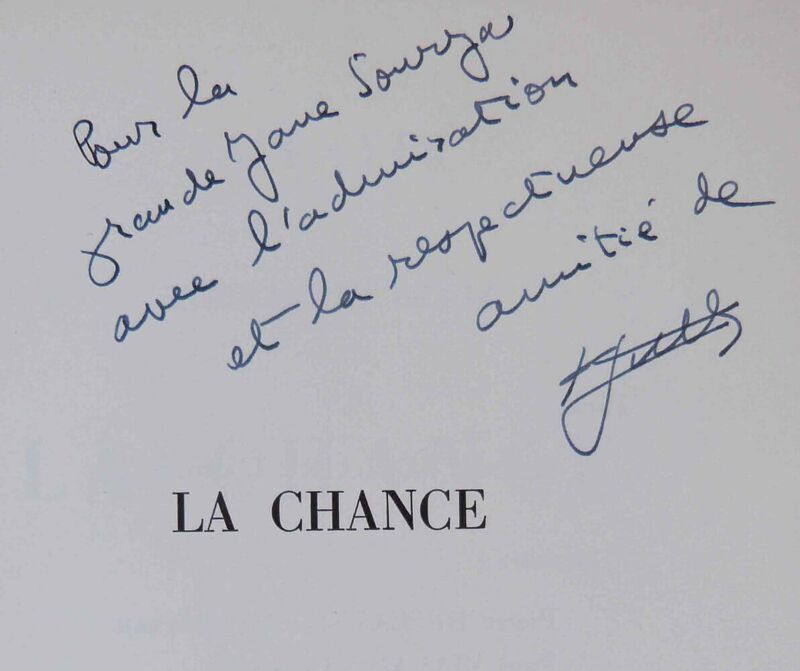 Pour la
grande Jane Sourza
avec l'admiration
et la respectueuse
amitié de
LA CHANCE